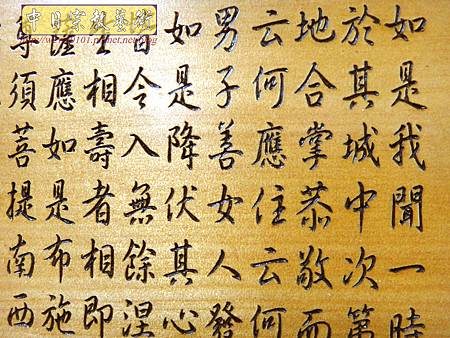 中日宗教藝術
如是我聞一時
於其城中次第
地合掌恭敬而
云何應住云何
男子善女人發
如是降伏其心
皆令入無餘涅
生相壽者相即
薩應如是布施
尊須菩提南西